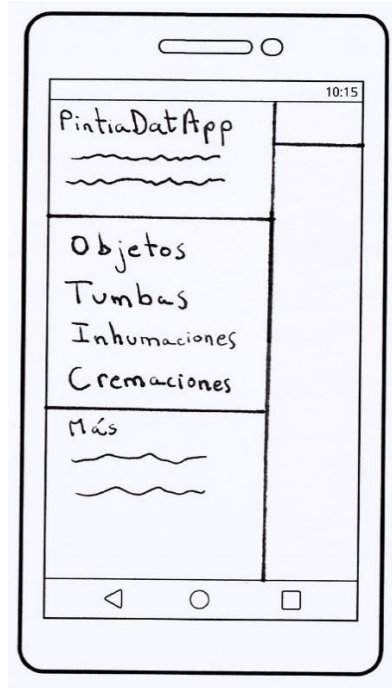 10:15
PintiaDatApp
Objetos
Tumbas
Inhumaciones
Cremaciones
Más